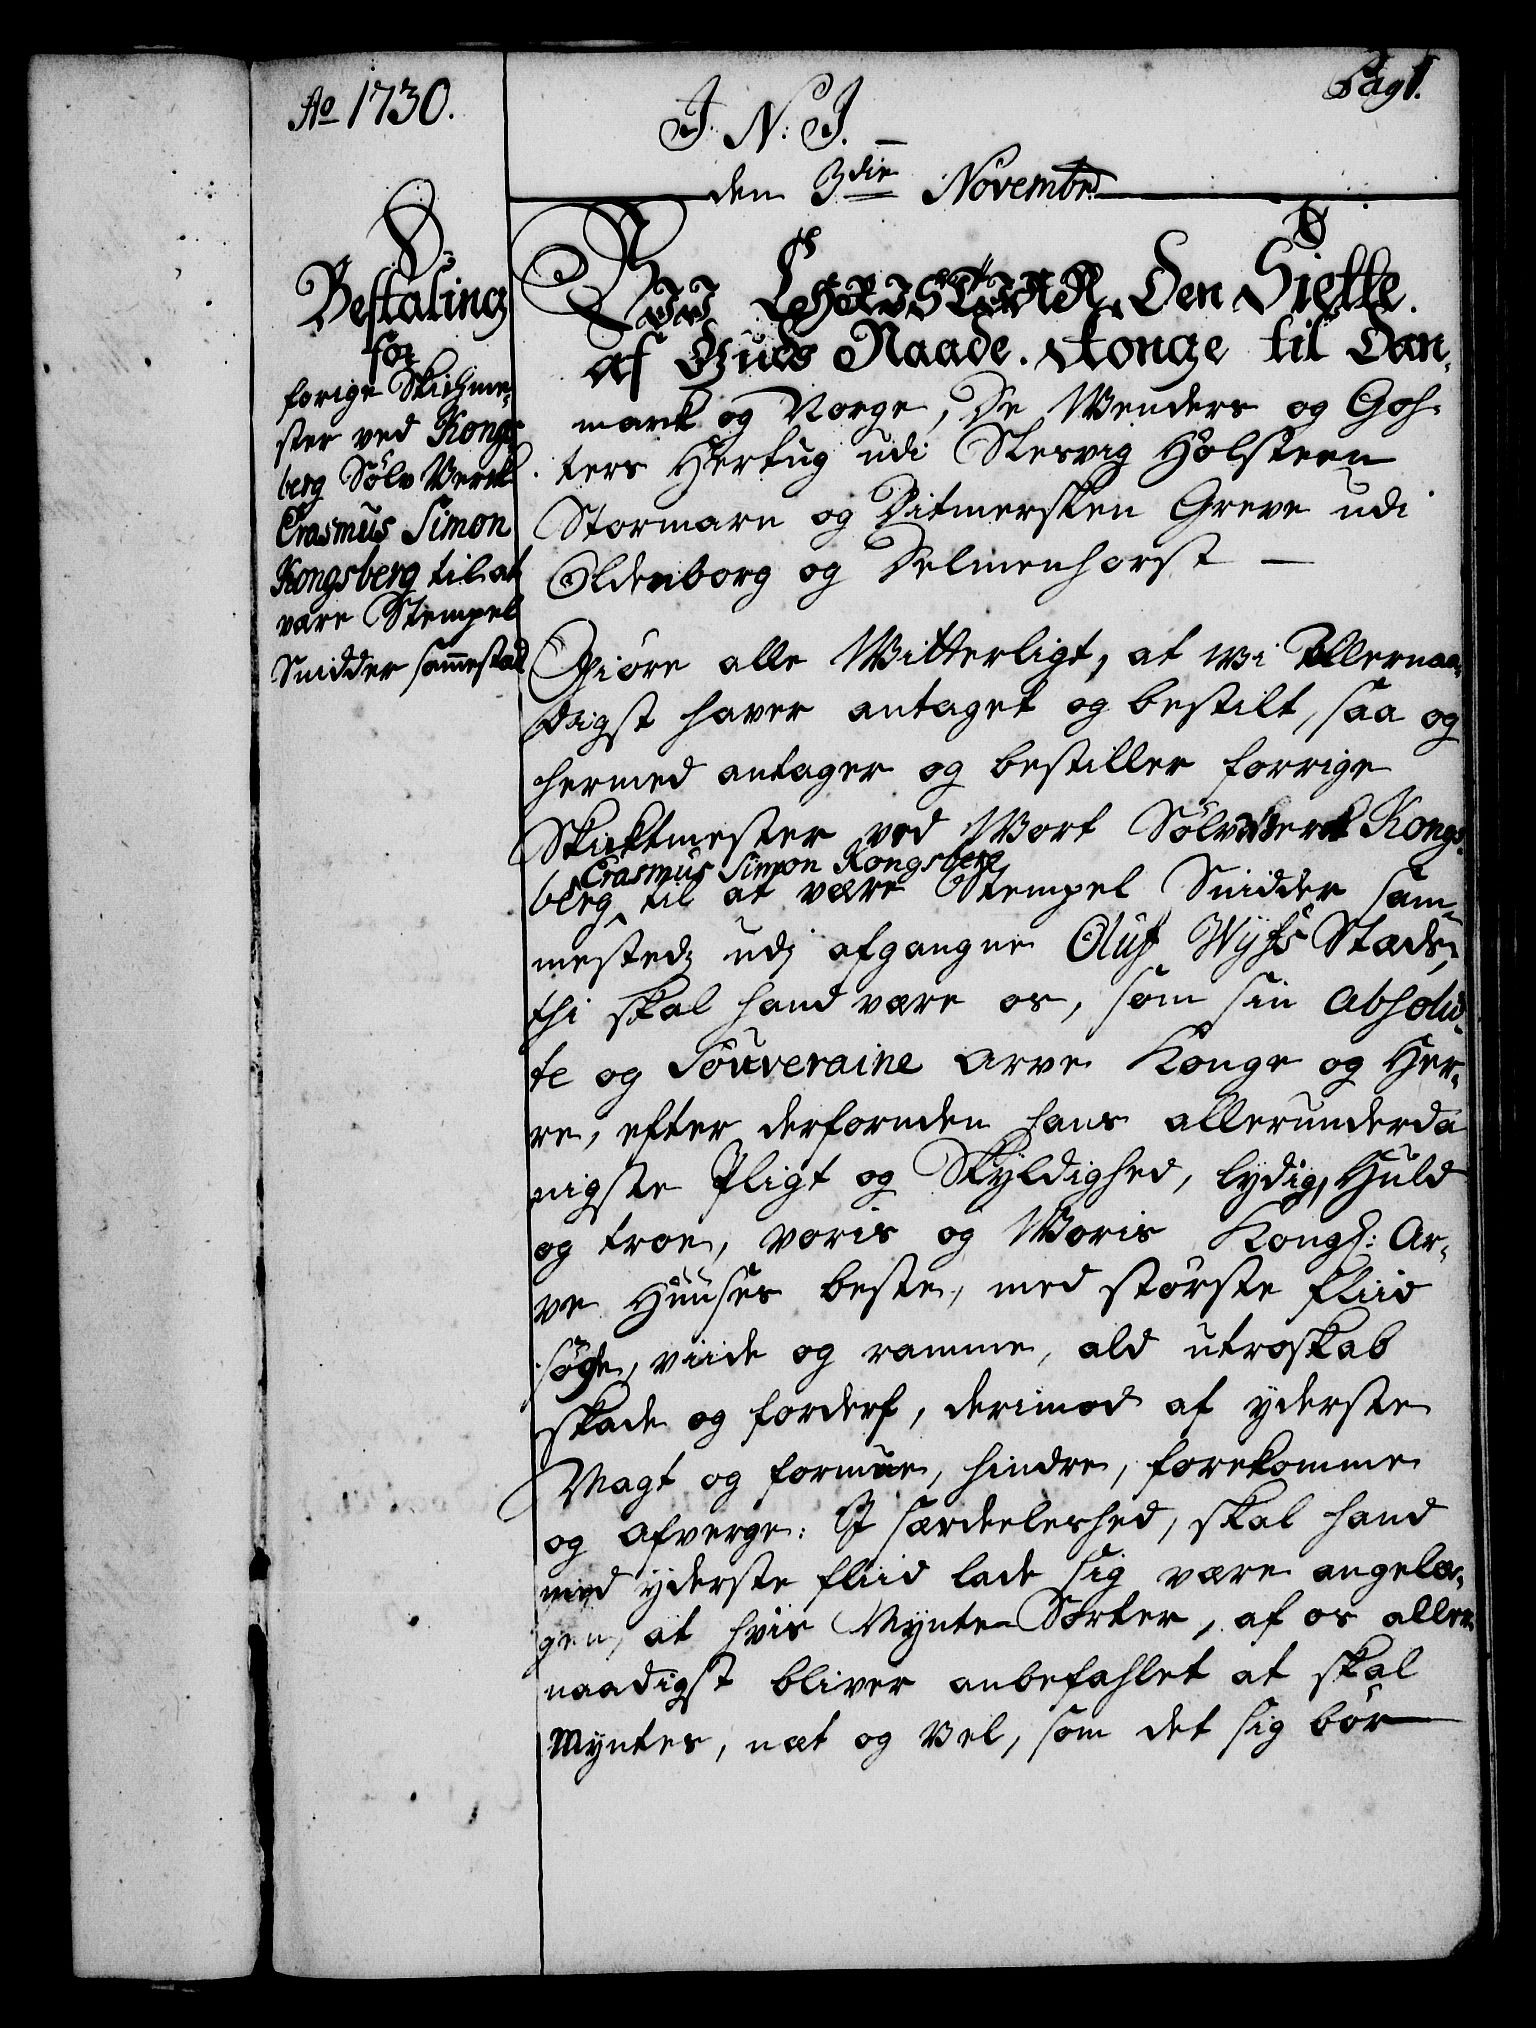 Ao 1730.
Pag 1.
J. N. J.
den 3die Novembr
Bestaling
for
forige Skichtme,
ster ved Kongs
berg Sølv Werck
Erasmus Simon
Kongsberg til at
være Stempel
Snidder sam̄estad
Wii CHRISTIAN. Den Siette.
af Guds Naade. Konge til Dan,
mark og Norge, De Wenders og Goh,
ters Hertug udi Slesvig Holsteen
Stormarn og Ditmersken Greve udi
Oldenborg og Delmenhorst —
Giøre alle Witterligt, at wi Allernaa,
digst haver antaget og bestilt, saa og
hermed antager og bestiller forrige
Skicktmester ved Wort Sølvwerck Kongs,
Erasmus Simon Kongsberg
berg til at være Stempel Snidder sam,
mested, udj afgangne Oluf Wijfs Stæd,
thi skal hand være os, som sin Absolu,
te og Souveraine Arve Konge og Her,
re, efter derfornden hans allerunderda
nigste Pligt og Skyldighed, lydig, Huld
og troe, voris og Woris Kongl: Ar,
ve Huuses beste, med største fliid
søge, viide og ramme, ald utroskab
skade og forderf, derimod af yderste
Magt og formue, hindre, forekomme
og afverge: J særdeeleshed, skal hand
med yderste fliid lade sig være angelæ,
gen, at hvis Mynte-Sorter, af os aller,
naadigst bliver anbefahlet at skal
Myntes, næt og vel, som det sig bør